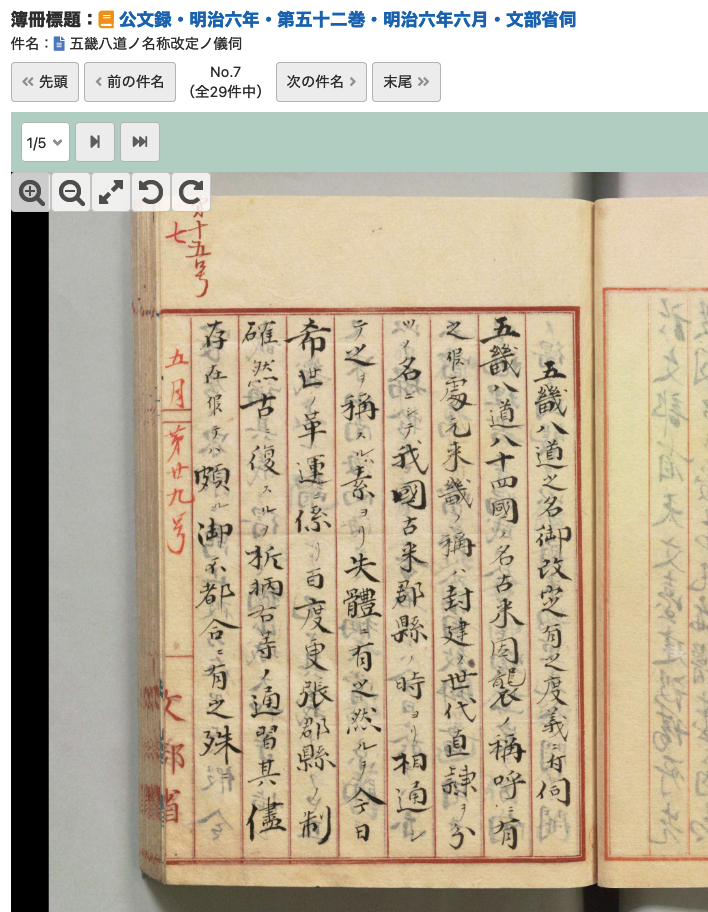 簿冊標題：公文録・明治六年・第五十二巻・明治六年六月・文部省伺
件名：五畿八道ノ名称改定ノ儀伺
先頭
前の件名
No.7
（全29件中）
次の件名
末尾
1/5
十五号
七
五畿八道之名御改定有之度義ニ付伺
五畿八道八十四國ノ名古来因襲ノ稱呼ニ有
之候處元来畿ノ稱ハ封建ノ世代直隷ヲ分
ツノ名ニシテ我國古来郡縣ノ時ヨリ相通シ
テ之ヲ稱スル素ヨリ失體ニ有之然ルヲ今日
希世ノ革運ニ係リ百度更張郡縣ノ制
確然古ニ復スルノ折柄右等ノ通習其儘
存在候テハ頗ル御不都合ニ有之殊
五月
第廿九号
文部省